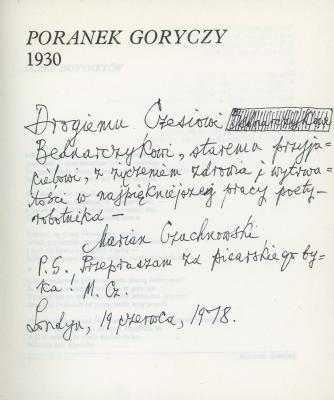 PORANEK GORYCZY
1930
Drogiemu Czesiowi
Bednarczykowi, staremu przyja-
cielowi, z życzeniem zdrowia i wytrwa-
łości w najpiękniejszej pracy poety-
robotnika —
Marian Czuchnowski
P.S. Przepraszam za pisarskiego by-
ka! M. Cz.
Londyn, 19 czerwca, 1978.